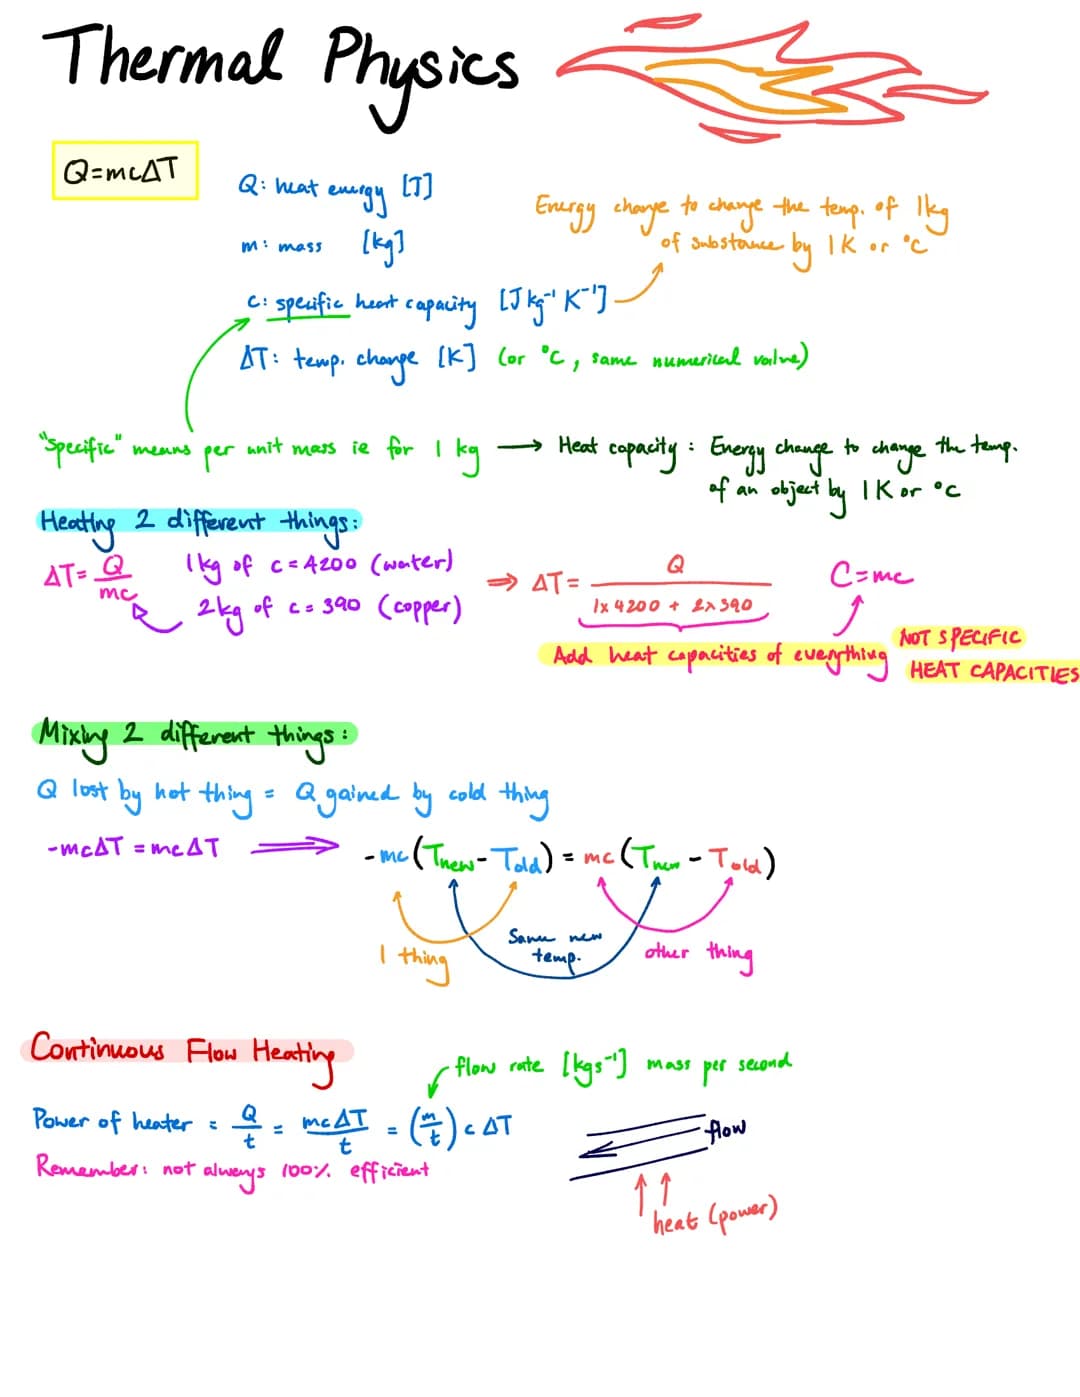 Thermal Physics
Q=mcΔT
Q: heat energy [J]
m: mass [kg]
c: specific heat capacity [J kg⁻¹ K⁻¹]
ΔT: temp. change [K] (or °C, same numerical value)
Energy change to change the temp. of 1kg
of substance by 1K or °C
"Specific" means per unit mass ie for 1 kg → Heat capacity: Energy change to change the temp.
of an object by 1K or °C
Heating 2 different things:
ΔT= Q/mc
1kg of c=4200 (water)
2kg of c=390 (copper)
⇒ ΔT= Q/(1x4200 + 2x390)
C=mc
Add heat capacities of everything
NOT SPECIFIC
HEAT CAPACITIES
Mixing 2 different things:
Q lost by hot thing = Q gained by cold thing
-mcΔT = mcΔT ⟹ -mc(Tnew-Told) = mc(Tnew-Told)
1 thing
Same new
temp.
other thing
Continuous Flow Heating
flow rate [kgs⁻¹] mass per second
Power of heater = Q/t = mcΔT/t = (m/t) c ΔT
Remember: not always 100% efficient
flow
heat (power)